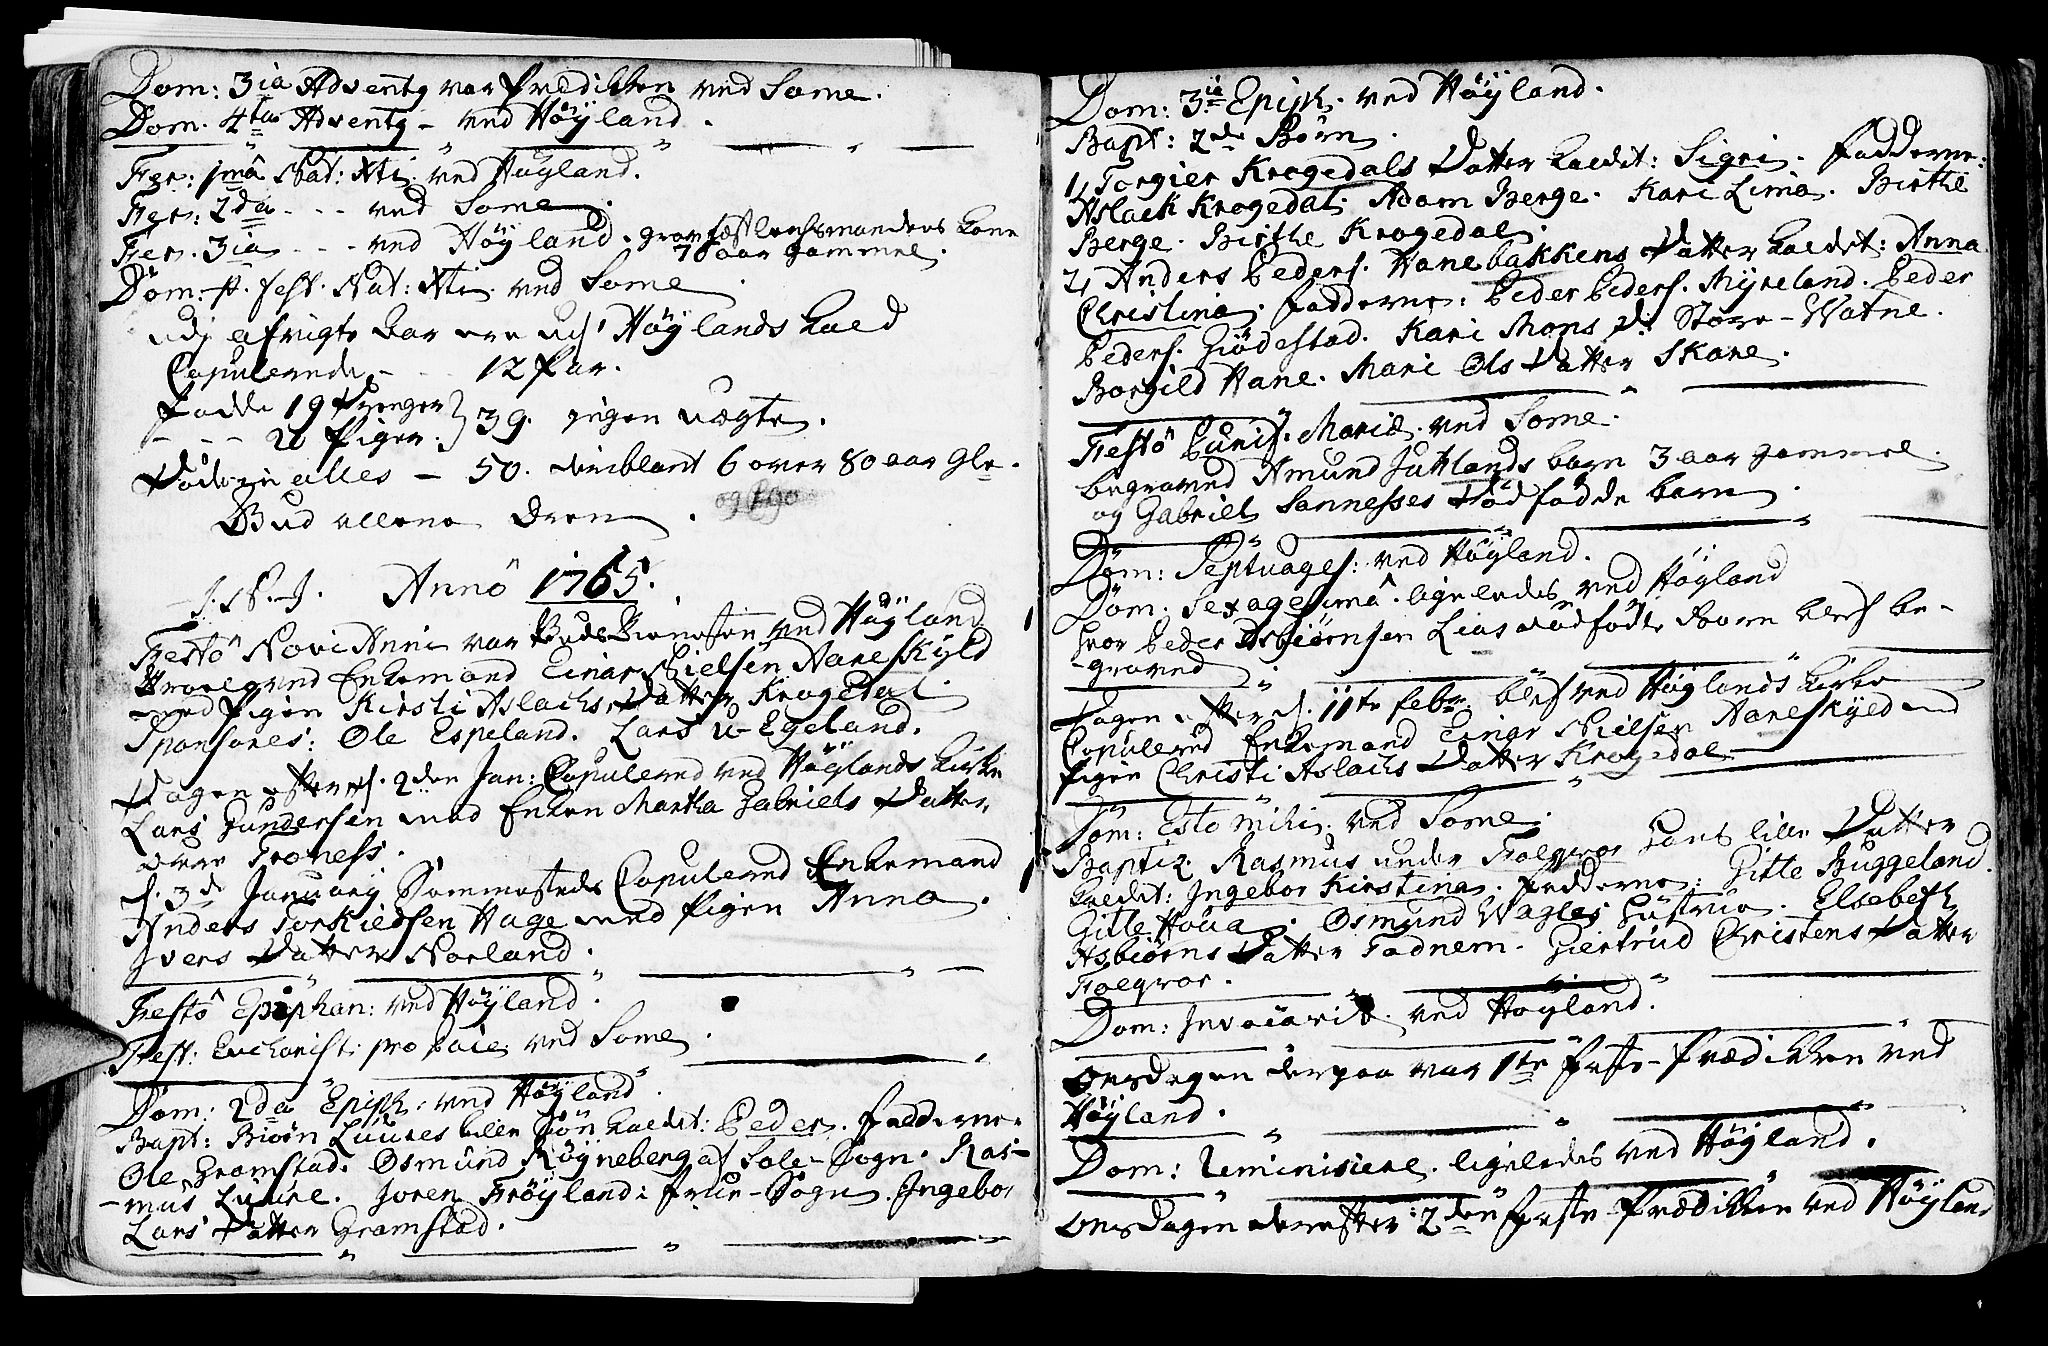 Dom: 3ia Advent9 var Prediken ved Some.
Dom. 4ta Advent9 - ved Höyland.
Fer: 1mâ Nat: Xti. ved Höyland.
Fer: 2da - - - ved Some.
Fer. 3ia - - - ved Höyland. græsfæst Lensmandens Kone
78 aar gammel.
Dom: p. fest. Nat: Xti. ved Some
udj afvigte Aar ere udj Höylands Kald
Copulerede - - 12 Par.
Fødde 19 Drenger } 39. ingen uægte.
- - - 20 Piger.
Døde in alles - 50. deriblant 6 over 80 aar gle.
Gud allene Æren.
J. N. J. Annô 1765.
Festô Novi Anni var Guds Tienesten ved Höyland
Troloved Enkemand Einar Nielsen Hareskyld
med Pigen Kirsti Aslachs Datter Krogedal.
Sponsores: Ole Espeland. Lars U-Egeland.
Dagen efter d. 2den Jan: Copulered ved Höylands Kirke
Lars Gundersen med Enken Martha Gabriels Datter
Øvre Troness.
d. 3de January Sammesteds Copulered Enkemand
Anders Torkieldsen Hage med Pigen Anna
Ivers Datter Norland.
Festô Epiphan: ved Höyland.
Fest: Eucharist: pro pace ved Some.
Dom: 2da Epiph: ved Höyland.
Bapt: Biörn Luures lille Sön kaldet: Peder. Fadderne:
Ole Gramstad. Osmund Röyneberg af Sole-Sogn. Ras-
-mus Luure. Joren Fröyland i Frue-Sogn. Ingebor
Lars Datter Gramstad.
Dom: 3ia Epiph. ved Höyland.
Bapt: 2de Börn.
1, Torgier Krogedals Datter kaldet: Sigri. Fadderne:
Aslack Krogedal. Adam Berge. Kari Lima. Birthe
Berge. Birthe Krogedal.
2, Anders Peders. Hanebakkens Datter kaldet: Anna
Christina. Fadderne: Peder Peders. Myreland. Peder
Peders. Giödestad. Kari Mons D. Store-Watne.
Borgild Hane. Mari Ols Datter Skare.
Festô Purif. Mariæ. ved Some.
begraved Amund Jutlands barn 3 aar gammel.
og Gabriel Sannesses Dödfödde barn.
Dom: Septuages: ved Höyland.
Dom: Sexagesimâ. ligeledes ved Höyland
hvor Peder Asbiörnsen Lias dödfödte Barn blef be-
-graved
Dagen efter d. 11te Febr: blef ved Höylands Kirke
Copulered Enkemand Einar Nielsen Hareskyld med
Pigen Christi Aslachs Datter Krogedal
Dom: Esto mihi. ved Some.
Baptiz. Rasmus under Folqvor hans lille Datter
kaldet: Ingebor Kirstina. Fadderne: Gitle Buggeland.
Gitle Höua. Osmund Wagles Hustrue. Elsebeth
Asbiörns Datter Fadnem. Giertrud Christens Datter
Folqvor.
Dom: Invocavit. ved Höyland.
Onsdagen derpaa var 1te Faste-Prædikken ved
Höyland.
Dom: Reminiscere. ligeledes ved Höyland.
Onsdagen derefter 2den Faste Prædikken ved Höyland